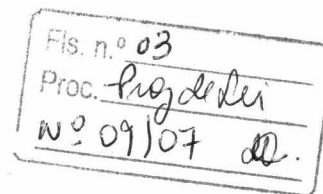 Fls. n.º 03
Proc. Proj de Lei
Nº 09/07